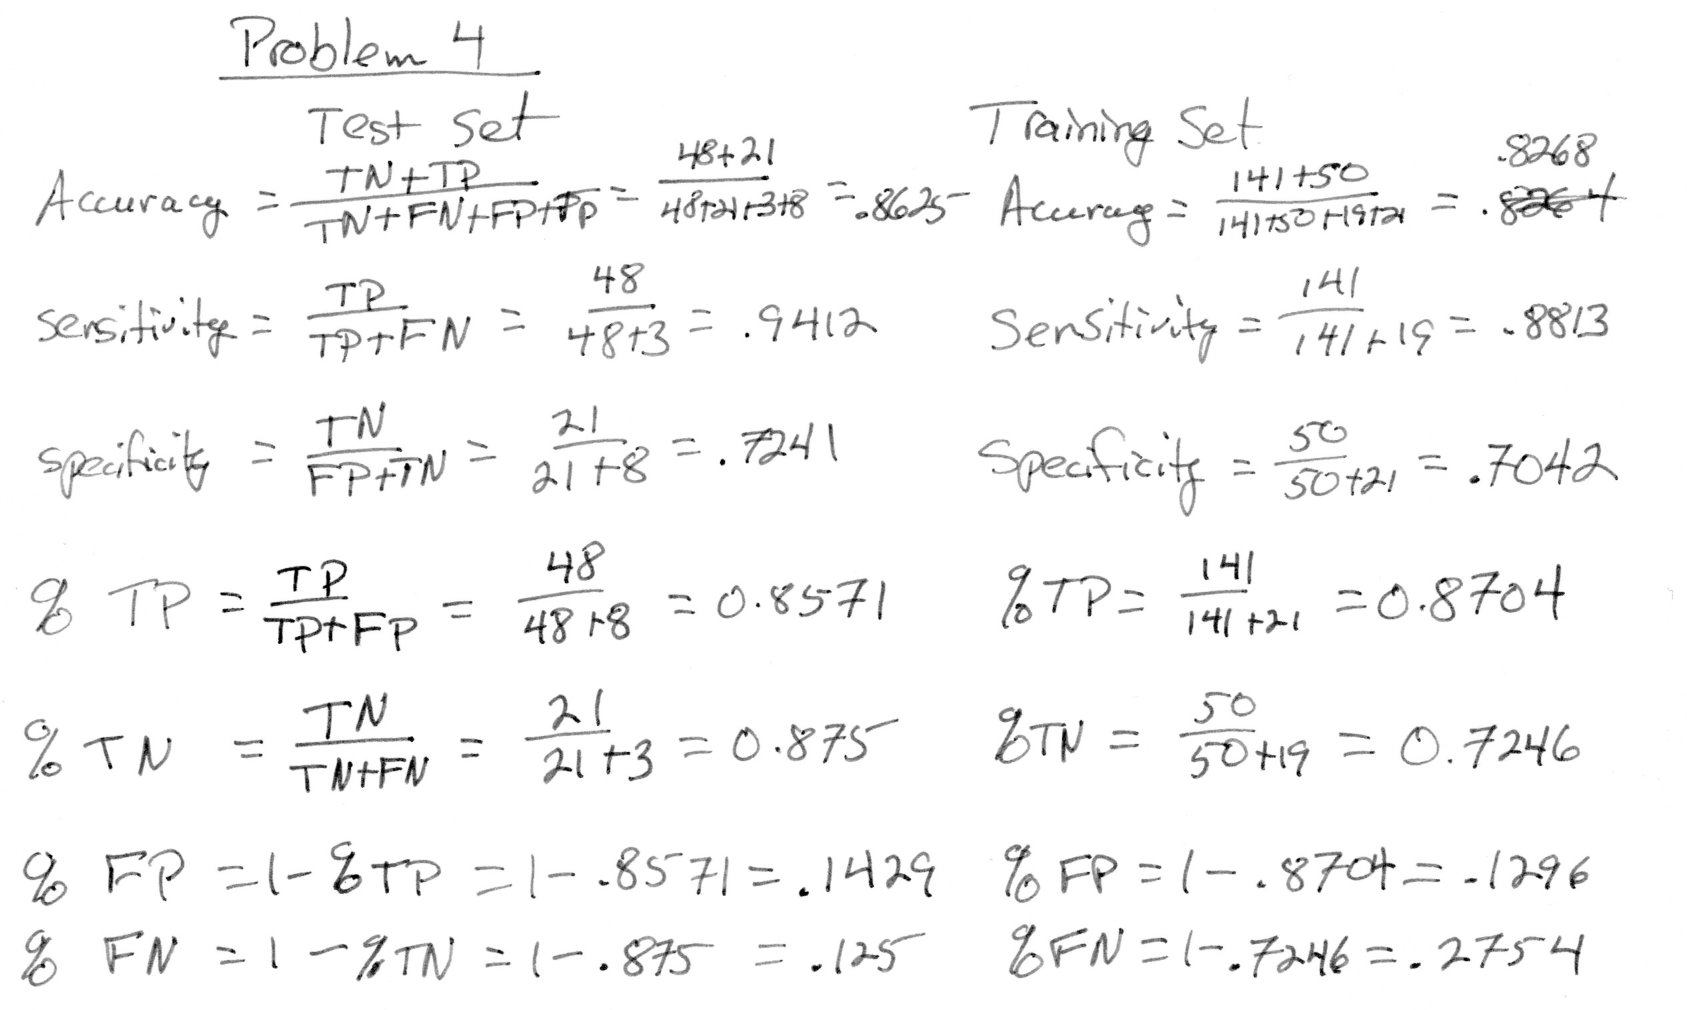 Problem 4
Test Set
Accuracy = TN+TP / TN+FN+FP+TP = 48+21 / 48+21+3+8 = .8625
sensitivity = TP / TP+FN = 48 / 48+3 = .9412
specificity = TN / FP+TN = 21 / 21+8 = .7241
% TP = TP / TP+FP = 48 / 48+8 = 0.8571
% TN = TN / TN+FN = 21 / 21+3 = 0.875
% FP = 1-%TP = 1-.8571 = .1429
% FN = 1-%TN = 1-.875 = .125
Training Set
Accuracy = 141+50 / 141+50+19+21 = .8268
Sensitivity = 141 / 141+19 = .8813
Specificity = 50 / 50+21 = .7042
%TP = 141 / 141+21 = 0.8704
%TN = 50 / 50+19 = 0.7246
% FP = 1-.8704 = .1296
%FN = 1-.7246 = .2754